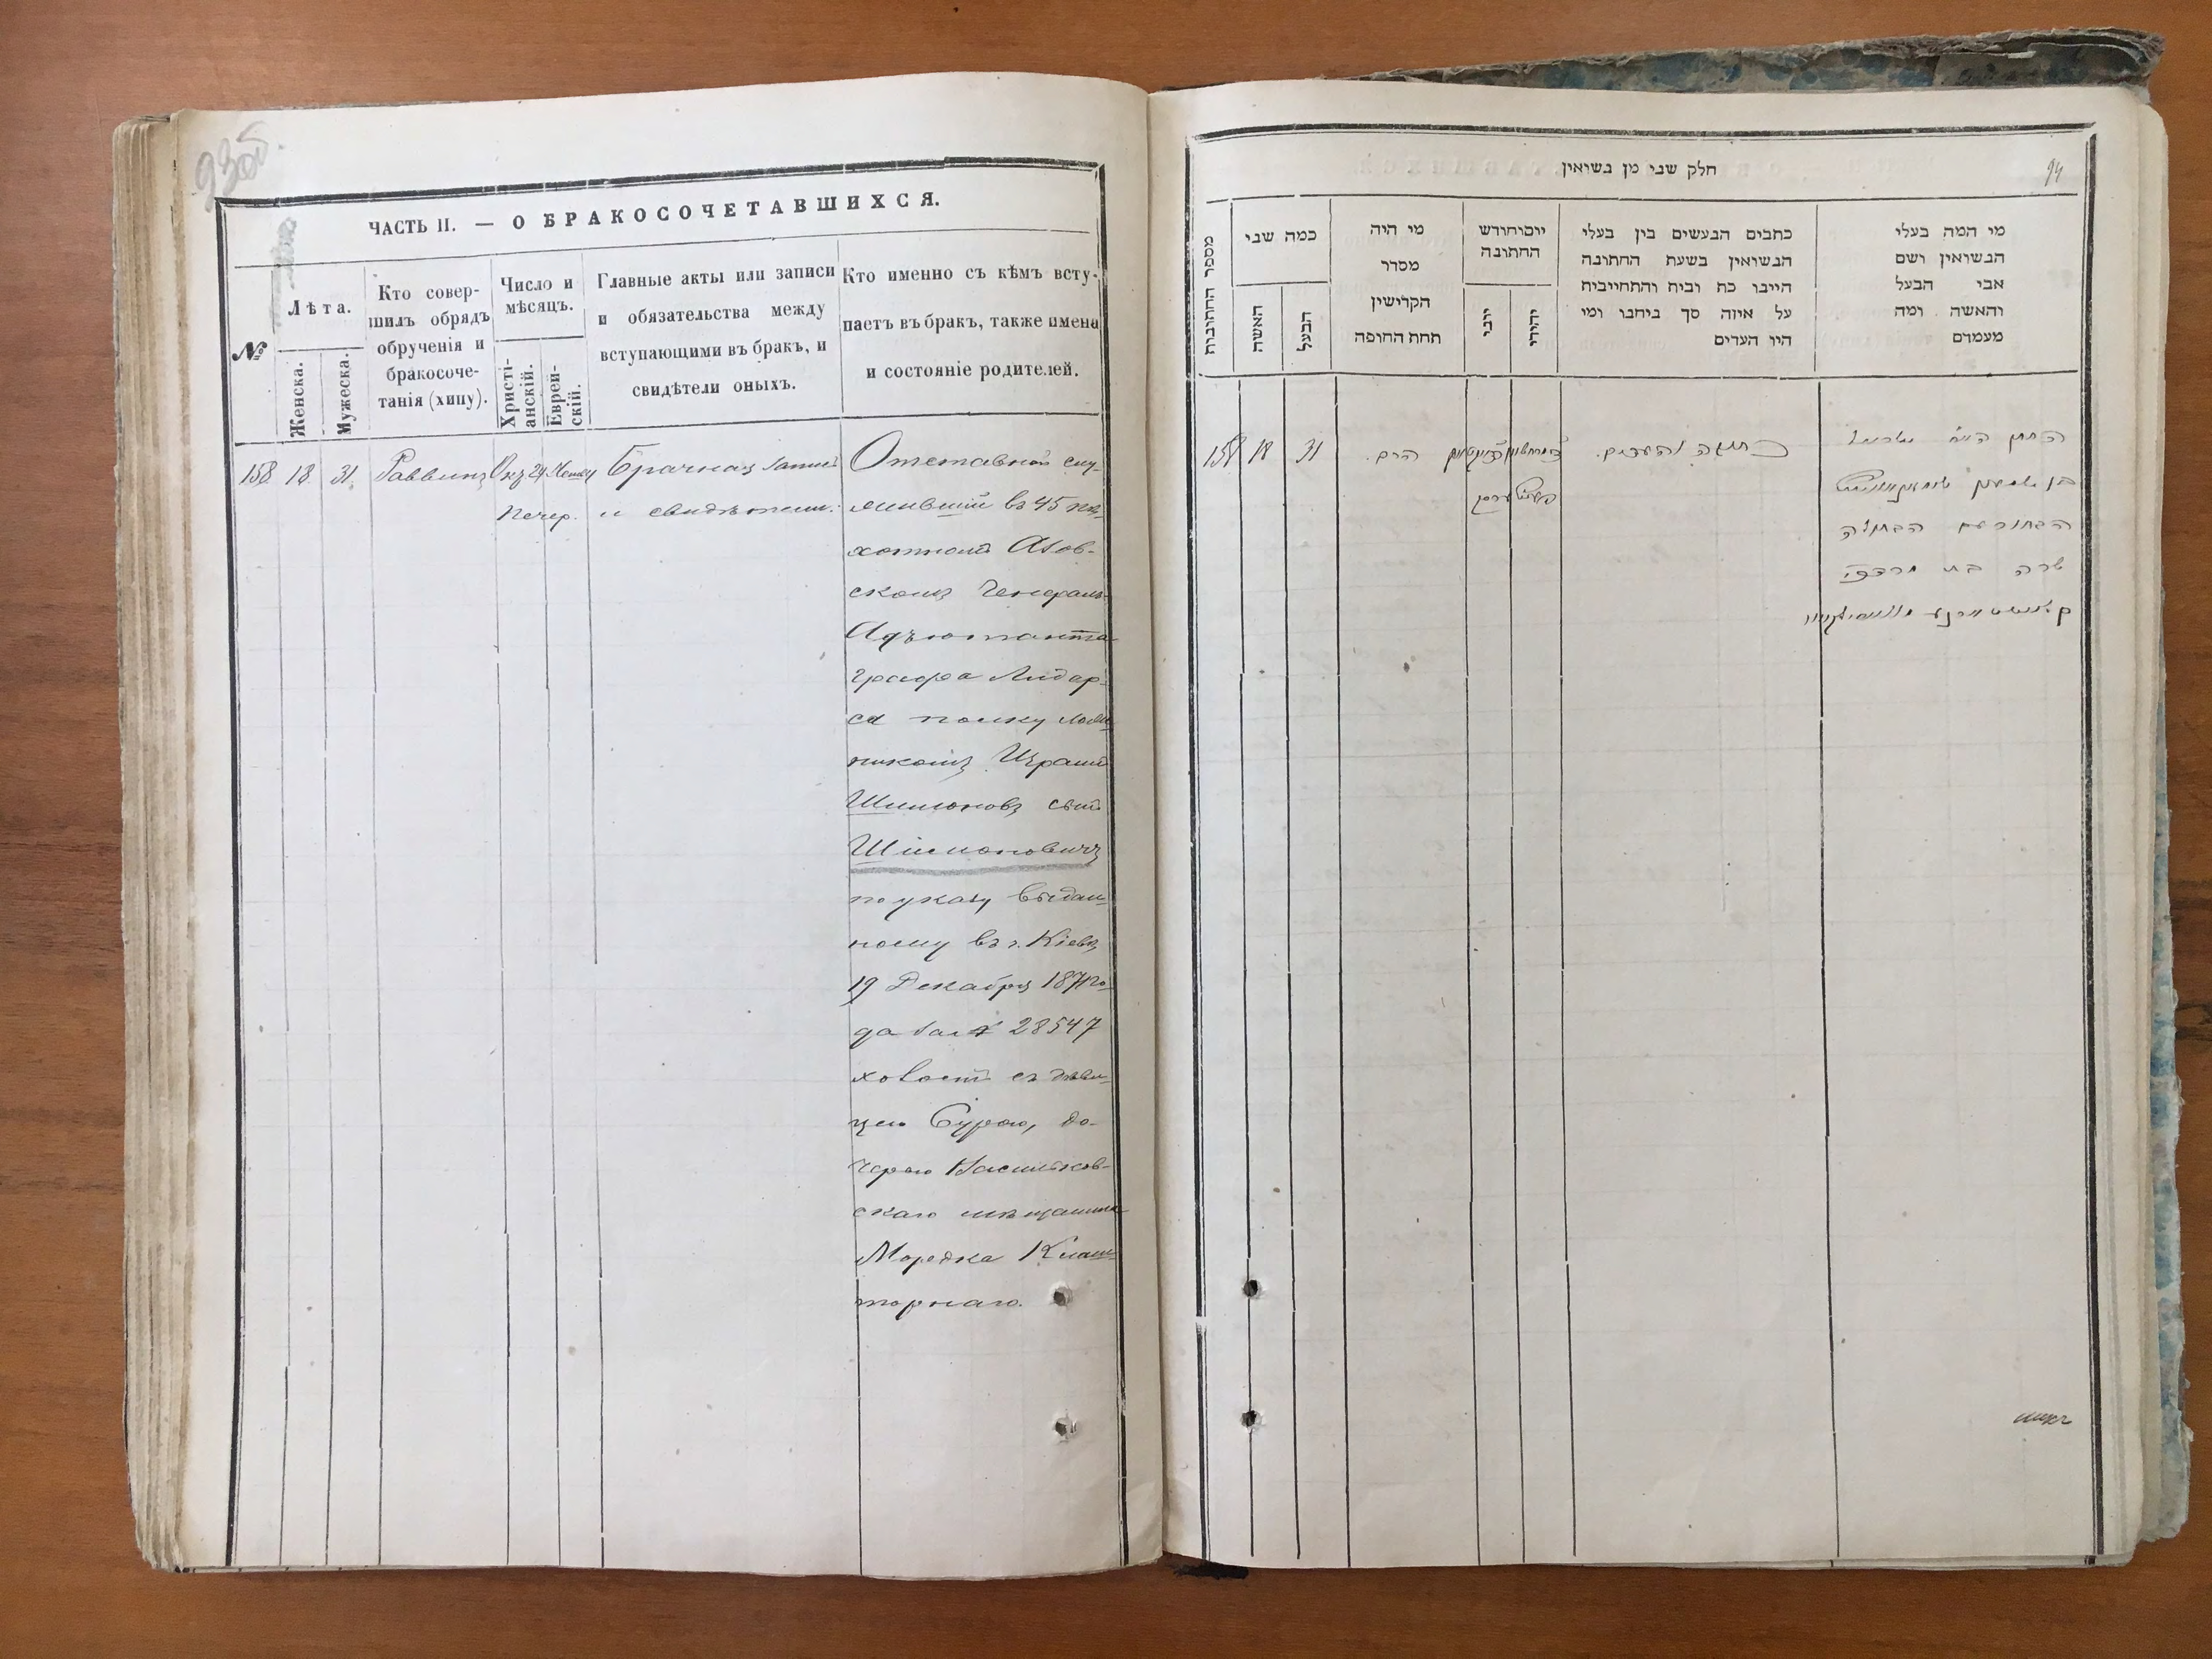 93об.
ЧАСТЬ II. — О БРАКОСОЧЕТАВШИХСЯ.
№
Лѣта.
Женска.
Мужеска.
Кто совер-
шилъ обрядъ
обрученія и
бракосоче-
танія (хипу).
Число и
мѣсяцъ.
Христі-
анскій.
Еврей-
скій.
Главные акты или записи
и обязательства между
вступающими въ бракъ, и
свидѣтели оныхъ.
Кто именно съ кѣмъ всту-
паетъ въ бракъ, также имена
и состояніе родителей.
158. 18. 31. Раввинъ
Печер.
Брачная запись
и свидѣтели.
Отставной слу-
жившій въ 45 пѣ-
хотномъ Азов-
скомъ Генералъ-
Адъютанта
графа Лидер-
са полку
Израиль
Шимоновъ сынъ
Шимоновичъ
по указу выдан-
ному въ г. Кіевѣ
19 Декабря 1871 го-
да за № 28547
холостъ съ дѣви-
цею Сурою, до-
черью Васильков-
скаго мѣщанина
Мордка Клаш-
торнаго.
94
חלק שני מן נשואין
מספר החתונות
כמה שני
האשה
הבעל
מי היה
מסדר
הקדישין
תחת החופה
יום וחודש
החתונה
יוני
יהודי
כתבים הנעשים בין בעלי
הנשואין בשעת החתונה
הייבו כח וביח והתחייבית
על איזה סך ביחבו ומי
היו העדים
מי המה בעלי
הנשואין ושם
אבי הבעל
והאשה ומה
מעמדם
158 18 31 הרב.
כתובה והעדים.
החתן
בן שמעון
הבתולה
שרה בת מרדכי